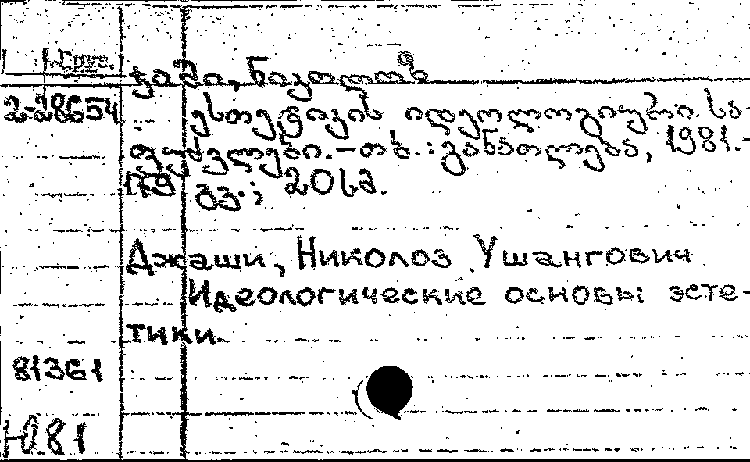 Груз.
ჯაში, ნიკოლოზ
2-28654 ესთეტიკის იდეოლოგიური სა-
ფუძვლები.-თბ.:განათლება, 1981.-
179 გვ.; 20სმ.
Джаши, Николоз Ушангович
Идеологические основы эсте-
тики.
81361